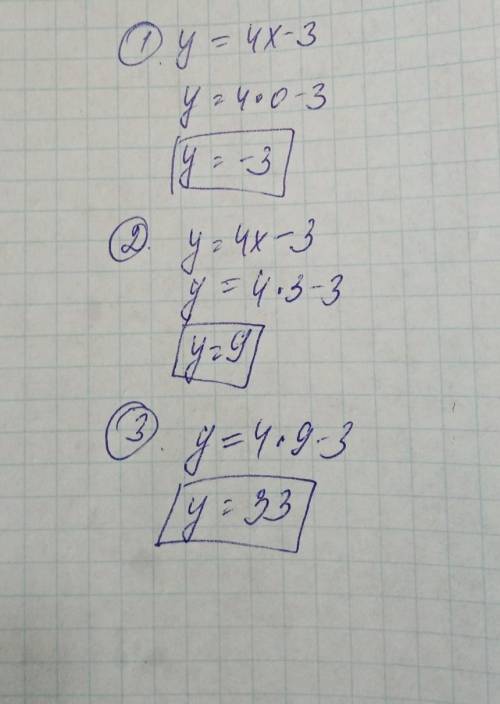 1. y = 4x-3
y = 4·0-3
y = -3
2. y = 4x-3
y = 4·3-3
y = 9
3. y = 4·9-3
y = 33